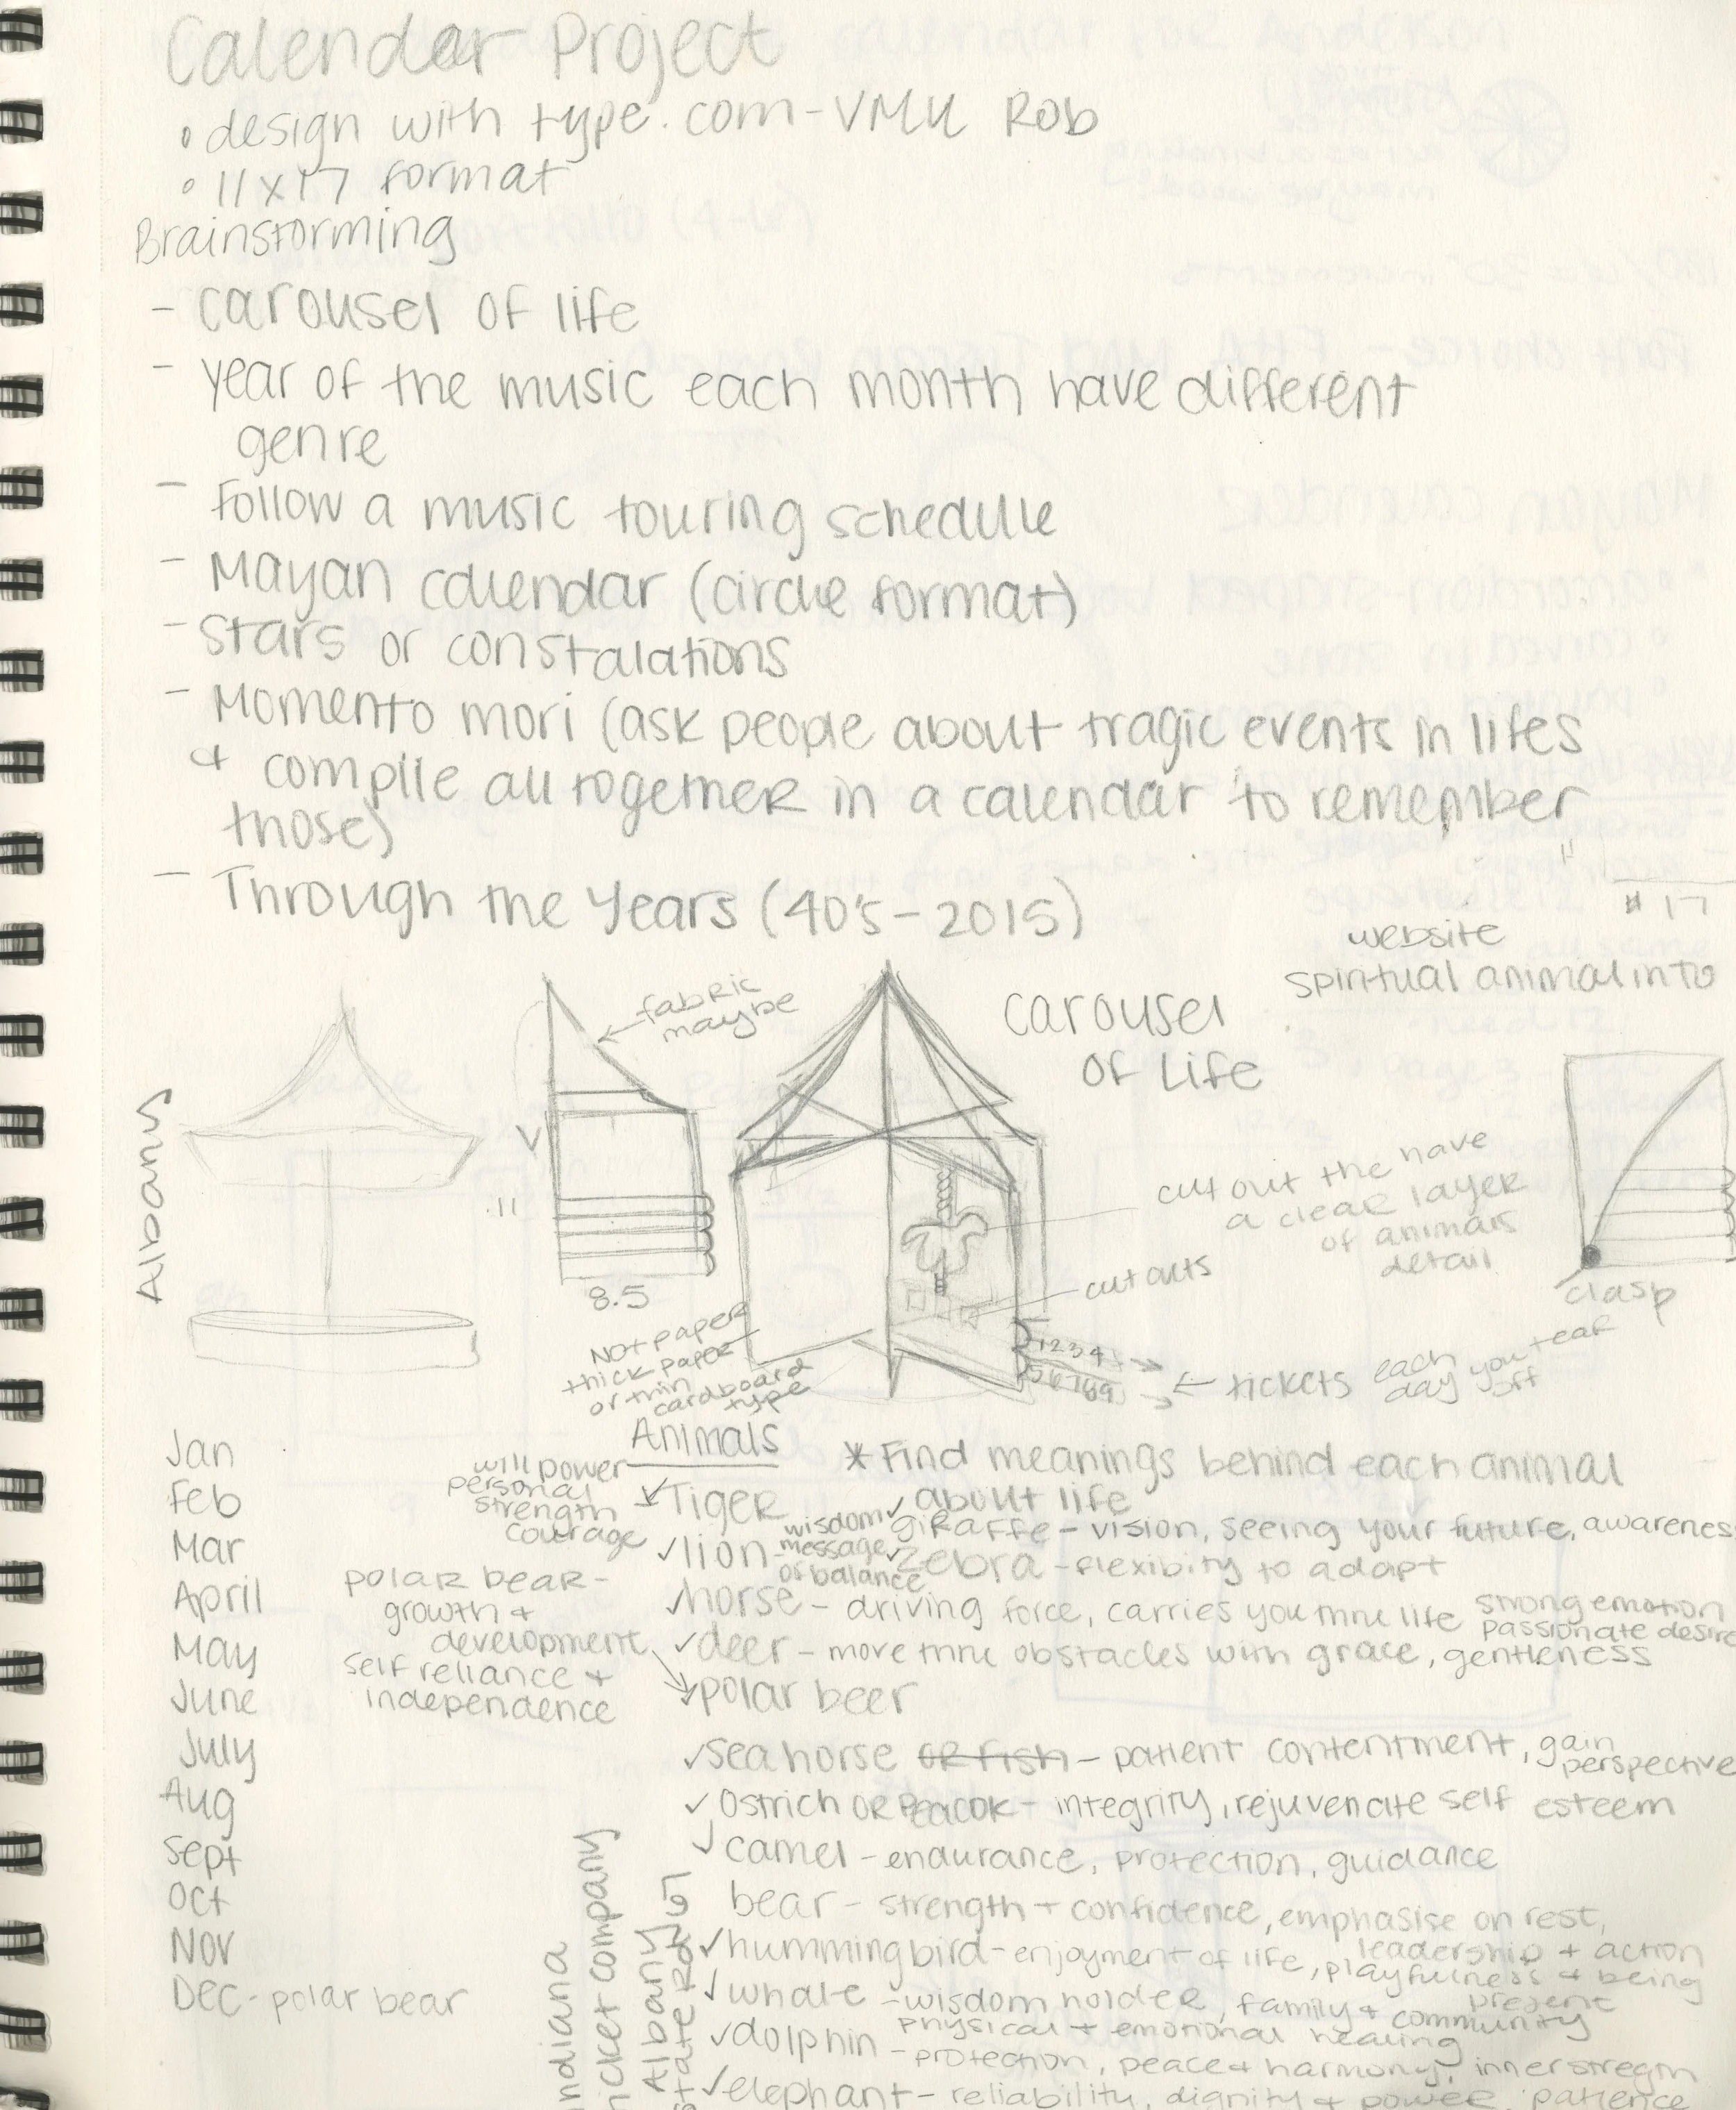 Calendar Project
• design with type.com - VMU Rob
• 11x17 format
Brainstorming
- carousel of life
- year of the music each month have different
genre
- Follow a music touring schedule
- Mayan calendar (circle format)
- Stars or constalations
- Momento mori (ask people about tragic events in lifes
& compile all together in a calendar "to remember
those)"
- Through the Years (40's - 2015)
17
website
spiritual animal info
fabric
maybe
carousel
of Life
Albany
11
8.5
cut out the have
a clear layer
of animals
detail
cut outs
clasp
Not paper
thick paper
or thin
cardboard
type
1234
56789
← tickets each
day you tear
off
Animals
* Find meanings behind each animal
about life
Jan
Feb
Mar
April
May
June
July
Aug
Sept
Oct
Nov
Dec - polar bear
will power
personal
strength
courage
Tiger
✓ lion - wisdom
message
of balance
✓ giraffe - vision, seeing your future, awarenes
✓ zebra - flexibity to adapt
✓ horse - driving force, carries you thru life strong emotion
passionate desire
✓ deer - move thru obstacles with grace, gentleness
polar bear -
growth &
development
self reliance &
independence
polar beer
✓ sea horse or fish - patient contentment, gain
perspective
✓ ostrich or peacok - integrity, rejuvenate self esteem
✓ camel - endurance, protection, guidance
bear - strength + confidence, emphasise on rest,
leadership + action
✓ hummingbird - enjoyment of life, playfulness & being
present
✓ whale - wisdom holder, family & community
physical + emotional healing
✓ dolphin - protection, peace & harmony, inner stregth
✓ elephant - reliability, dignity & power, patience
ndiana
icket company
Albany
state Road 67